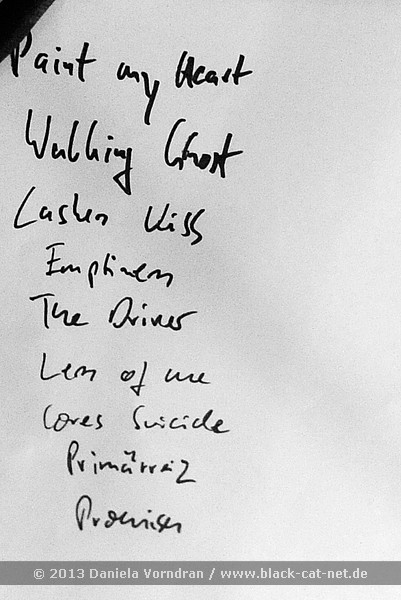 Paint my Heart
Walking Ghost
Lashes Kiss
Emptiness
The Driver
Less of me
Cores Suicide
Primärreiz
Promises
© 2013 Daniela Vorndran / www.black-cat-net.de